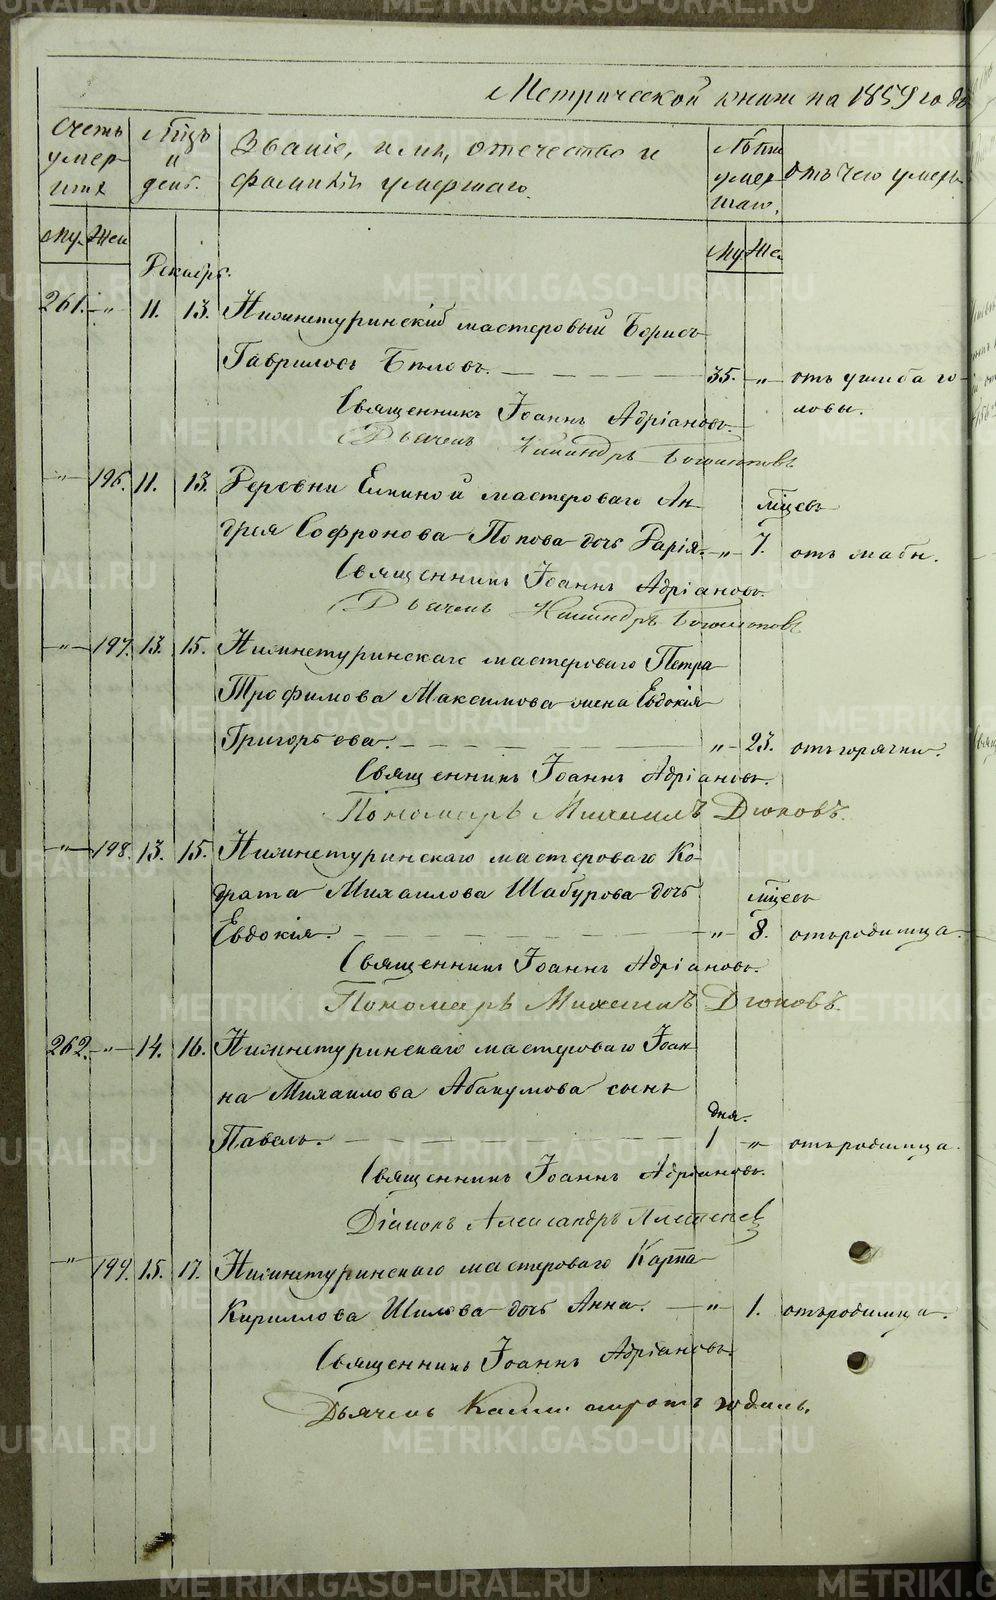 METRIKI.GASO-URAL.RU
Метрической книги на 1859 годъ
Счетъ умер- шихъ
Мѣсяцъ и день.
Званіе, имя, отечество и фамилія умершаго.
Лѣта умер- шаго.
отъ чего умеръ
Му. Жен.
Му. Же.
Декабрь.
261. „ 11. 13. Нижнетуринскій мастеровый Борисъ
Гавриловъ Бѣловъ. 35. „ отъ ушиба го-
ловы.
Священникъ Іоаннъ Адріановъ.
Дьячекъ
„ 196. 11. 13. Деревни Елкиной мастероваго Ан-
мѣсецъ
дрея Софронова Попова дочь Дарія. „ 7. отъ слабн.
Священникъ Іоаннъ Адріановъ.
Дьячекъ
„ 197. 13. 15. Нижнетуринскаго мастероваго Петра
Трофимова Максимова жена Евдокія
Григорьева. „ 23. отъ горячки.
Священникъ Іоаннъ Адріановъ.
Пономарь Михаилъ Дюковъ.
„ 198. 13. 15. Нижнетуринскаго мастероваго Ко-
драта Михаилова Шабурова дочь
мѣсецъ
Евдокія. „ 8. отъ родимца.
Священникъ Іоаннъ Адріановъ.
Пономарь Михаилъ Дюковъ.
262. „ 14. 16. Нижнетуринскаго мастероваго Іоан-
на Михаилова Абакумова сынъ
дня.
Павелъ. 1 „ отъ родимца.
Священникъ Іоаннъ Адріановъ.
Діаконъ Александръ
„ 199. 15. 17. Нижнетуринскаго мастероваго Карпа
Кириллова Шилова дочь Анна. „ 1. отъ родимца.
Священникъ Іоаннъ Адріановъ.
Дьячекъ